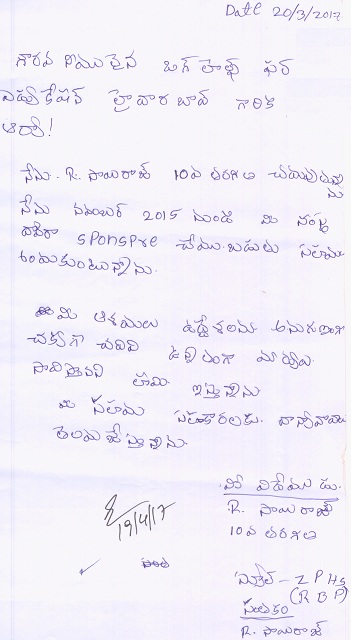 Date 20/3/2017
గౌరవ నీయులైన బిగ్ హెల్ప్ ఫర్
ఎడ్యుకేషన్ హైదారాబాద్ గారికి
ఆర్యా!
నేను. R. సాయిరాజ్ 10వ తరగతి చదువుతున్నాను
నేను నవంబర్ 2015 నుండి మీ సంస్థ
ద్వారా sponspre చేయు బడుతు సహయం
అందుకుంటున్నాను.
మీ ఆశయలు ఉద్దేశలను అనుగుణంగా
చక్కగా చదివి ఉన్నతంగా మార్కులు
సాదిస్తానని హామి ఇస్తున్నాను
మీ సహయ సహకారలకు దాన్యావాదాలు
తెలియజేస్తున్నాను.
మీ విదేయుడు.
R. సాయిరాజ్
10వ తరగతి
19/4/17
స్కూల్ - Z P H S
(R B P)
సంతకం
R. సాయిరాజ్